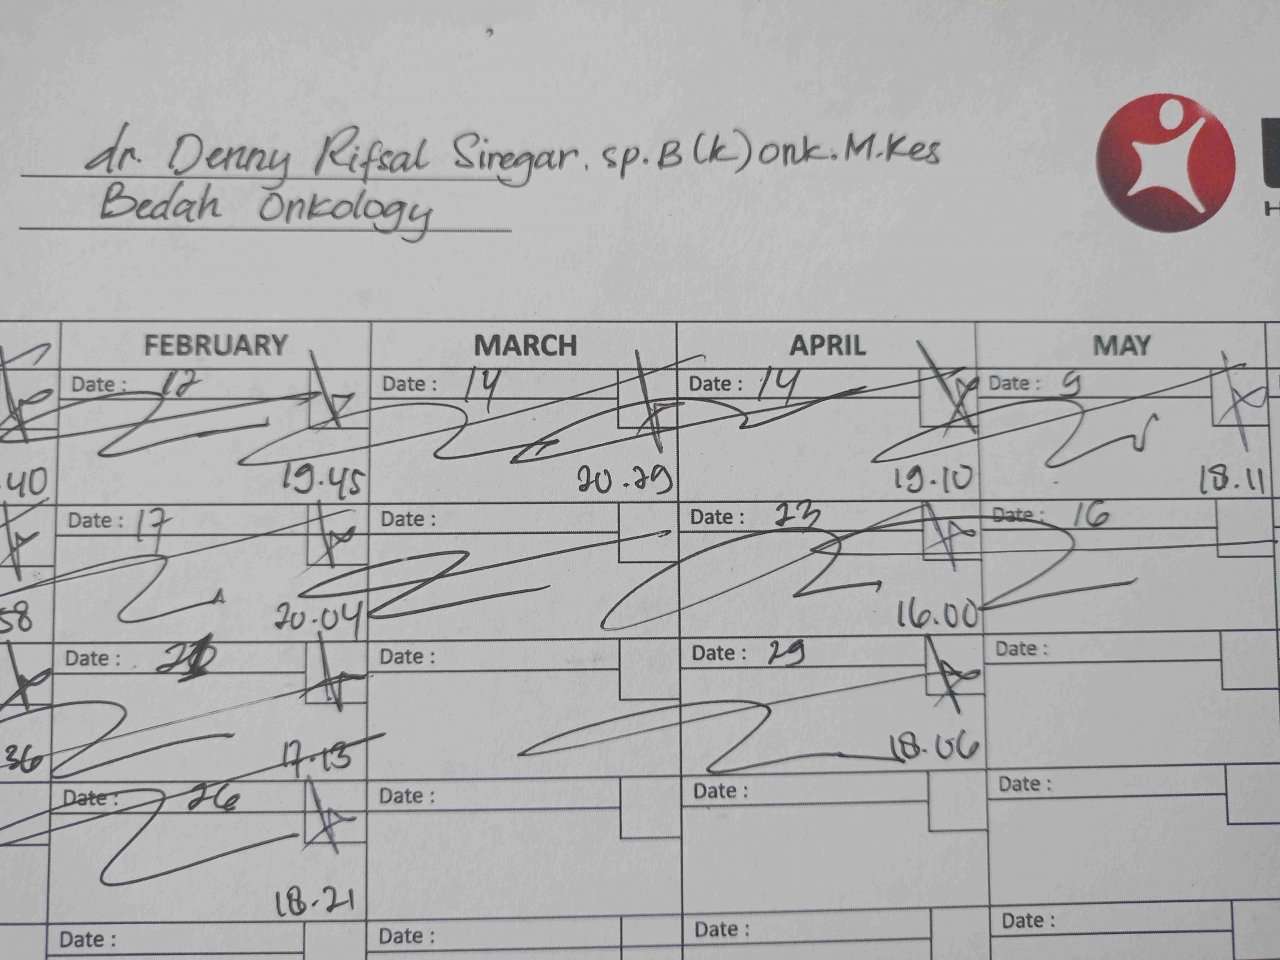 dr. Denny Rifsal Siregar. sp.B(k)onk.M.Kes
Bedah Onkology
FEBRUARY MARCH APRIL MAY
Date : 12 Date : 14 Date : 14 Date : 9
.40 19.45 20.29 19.10 18.11
Date : 17 Date : Date : 23 Date : 16
58 20.04 16.00
Date : Date : Date : 29 Date :
36 17.13 18.06
Date : 26 Date : Date : Date :
18.21
Date : Date : Date : Date :